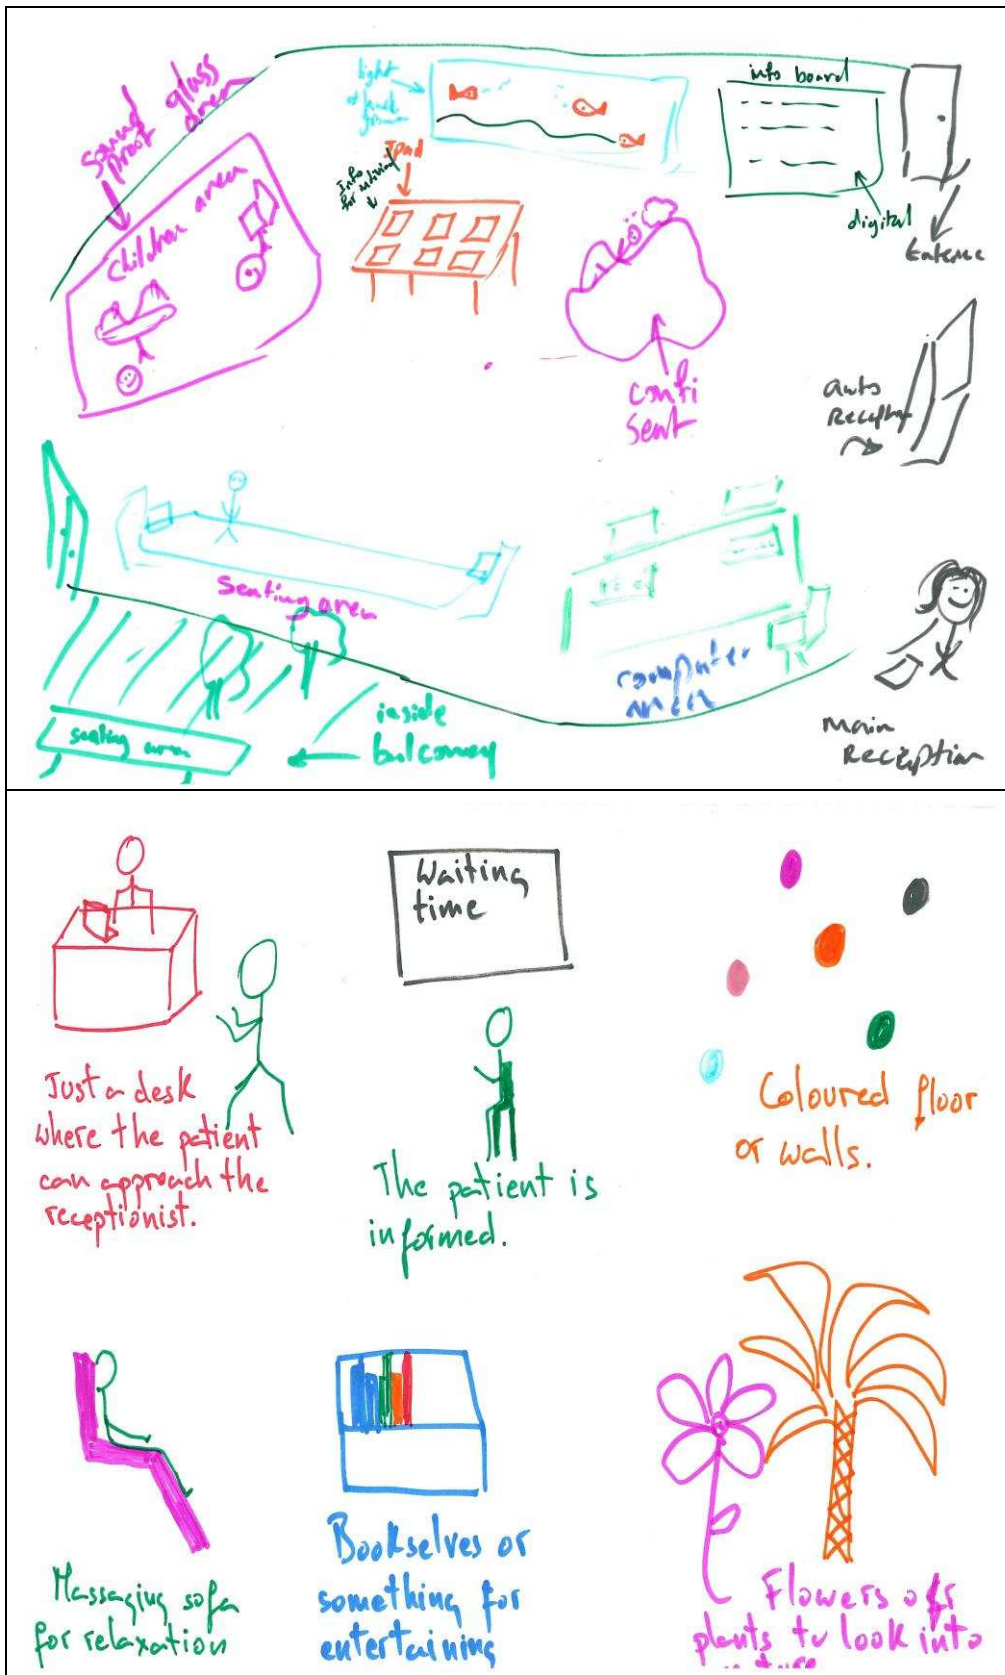 Sound
Proof
glass
area
children area
light
Ipad
Info
for
info board
digital
Enterne
comfi
seat
auto
Reception
seating area
computer
area
main
Reception
seating area
inside
balconey
Waiting
time
Just a desk
where the patient
can approach the
receptionist.
The patient is
informed.
Coloured floor
or walls.
Massaging sofa
for relaxation
Bookselves or
something for
entertaining
Flowers or
plants to look into